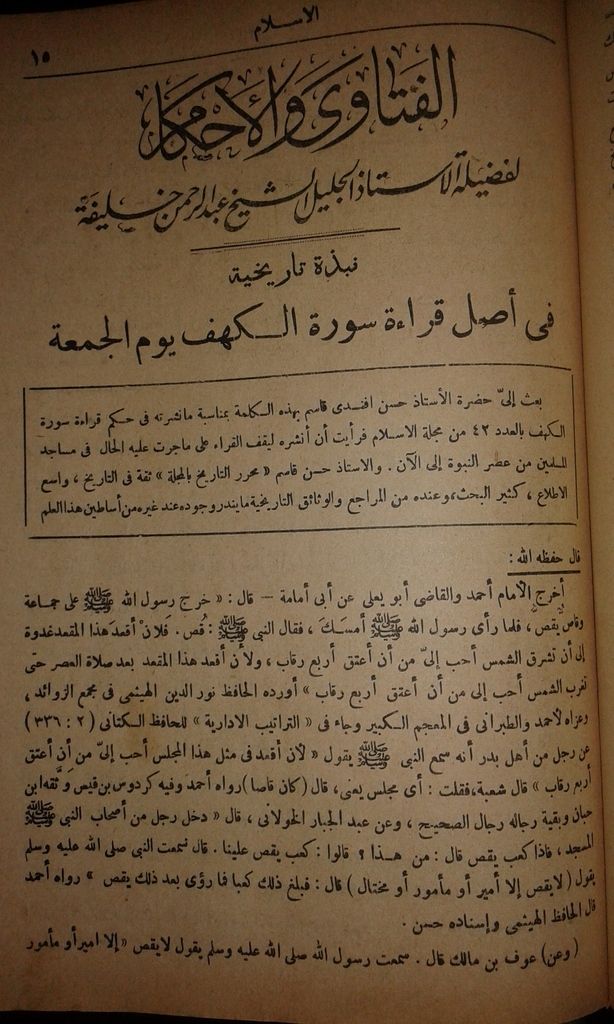 الاسلام
١٥
الفتاوى والأحكام
لفضيلة الاستاذ الجليل الشيخ عبد الرحمن خليفة
نبذة تاريخية
فى أصل قراءة سورة الكهف يوم الجمعة
بعث إلىّ حضرة الأستاذ حسن افندى قاسم بهذه الكلمة بمناسبة مانشرته فى حكم قراءة سورة
الكهف بالعدد ٤٢ من مجلة الاسلام فرأيت أن أنشره ليقف القراء على ماجرت عليه الحال فى مساجد
المسلمين من عصر النبوة إلى الآن . والاستاذ حسن قاسم « محرر التاريخ بالمجلة » ثقة فى التاريخ ، واسع
الاطلاع ، كثير البحث، وعنده من المراجع والوثائق التاريخية مايندر وجوده عند غيره من أساطين هذا العلم
قال حفظه الله :
أخرج الأمام أحمد والقاضى أبو يعلى عن أبى أمامة – قال : « خرج رسول الله ﷺ على جماعة
وقاصٌ يقص ، فلما رأى رسول الله ﷺ أمسك ، فقال النبى ﷺ : قُص . فلأن أقعد هذا المقعد غدوة
إلى أن تشرق الشمس أحب إلىّ من أن أعتق أربع رقاب ، ولأن أقعد هذا المقعد بعد صلاة العصر حتى
تغرب الشمس أحب إلى من أن أعتق أربع رقاب » أورده الحافظ نور الدين الهيثمى فى مجمع الزوائد ،
وعزاه لأحمد والطبرانى فى المعجم الكبير وجاء فى « التراتيب الادارية » للحافظ الكتانى ( ٢ : ٣٣٦ )
عن رجل من أهل بدر أنه سمع النبى ﷺ يقول « لأن أقعد فى مثل هذا المجلس أحب إلىّ من أن أعتق
أربع رقاب » قال شعبة، فقلت : أى مجلس يعنى، قال ( كان قاصا ) رواه أحمد وفيه كردوس بن قيس وثّقه ابن
حبان وبقية رجاله رجال الصحيح ، وعن عبد الجبار الخولانى ، قال « دخل رجل من أصحاب النبى ﷺ
المسجد ، فاذا كعب يقص قال : من هذا ؟ قالوا : كعب يقص علينا . قال سمعت النبى صلى الله عليه وسلم
يقول ( لايقص إلا أمير أو مأمور أو مختال ) قال : فبلغ ذلك كعبا فما رؤى بعد ذلك يقص » رواه أحمد
قال الحافظ الهيثمى وإسناده حسن .
( وعن ) عوف بن مالك قال . سمعت رسول الله صلى الله عليه وسلم يقول لايقص « إلا امير أو مأمور